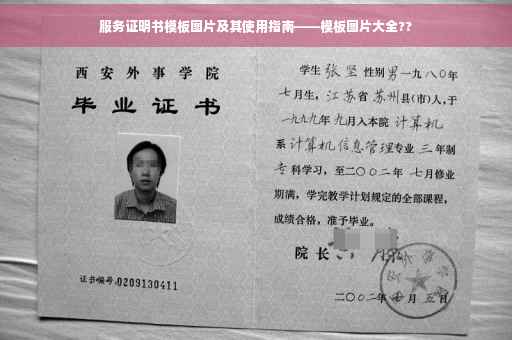 服务证明书模板图片及其使用指南——模板图片大全??
西安外事学院
毕业证书
证书编号:0209130411
学生 张坚 性别 男 一九八〇年
七月生，江苏省 苏州县(市)人，于
一九九九年 九月入本院 计算机
系 计算机信息管理专业 三 年制
专科学习，至二〇〇二年 七月修业
期满，学完教学计划规定的全部课程，
成绩合格，准予毕业。
院长
二〇〇二年 月 五日